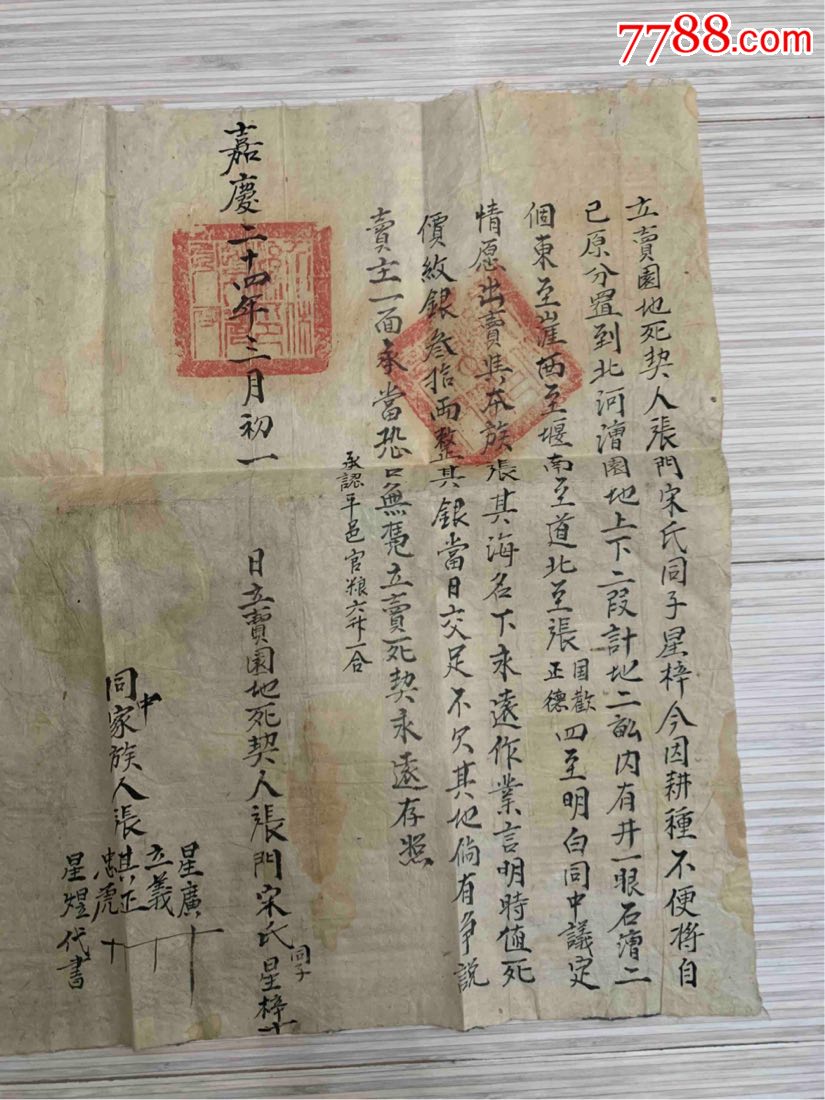 7788.com
立賣園地死契人張門宋氏同子星梓今因耕種不便将自
己原分置到北河漕園地上下二段計地二畝内有井一眼石漕二
個東至崖西至堰南至道北至張国歡正德四至明白同中議定
情愿出賣與本族張其海名下永遠作業言明時值死
價紋銀叁拾両整其銀當日交足不欠其地倘有争説
賣主一面承當恐口無凭立賣死契永遠存照
承認平邑官粮六升一合
嘉慶二十四年三月初一日立賣園地死契人張門宋氏同子星梓十
同中家族人張
星廣
立義
其正
忠虎
星煜代書